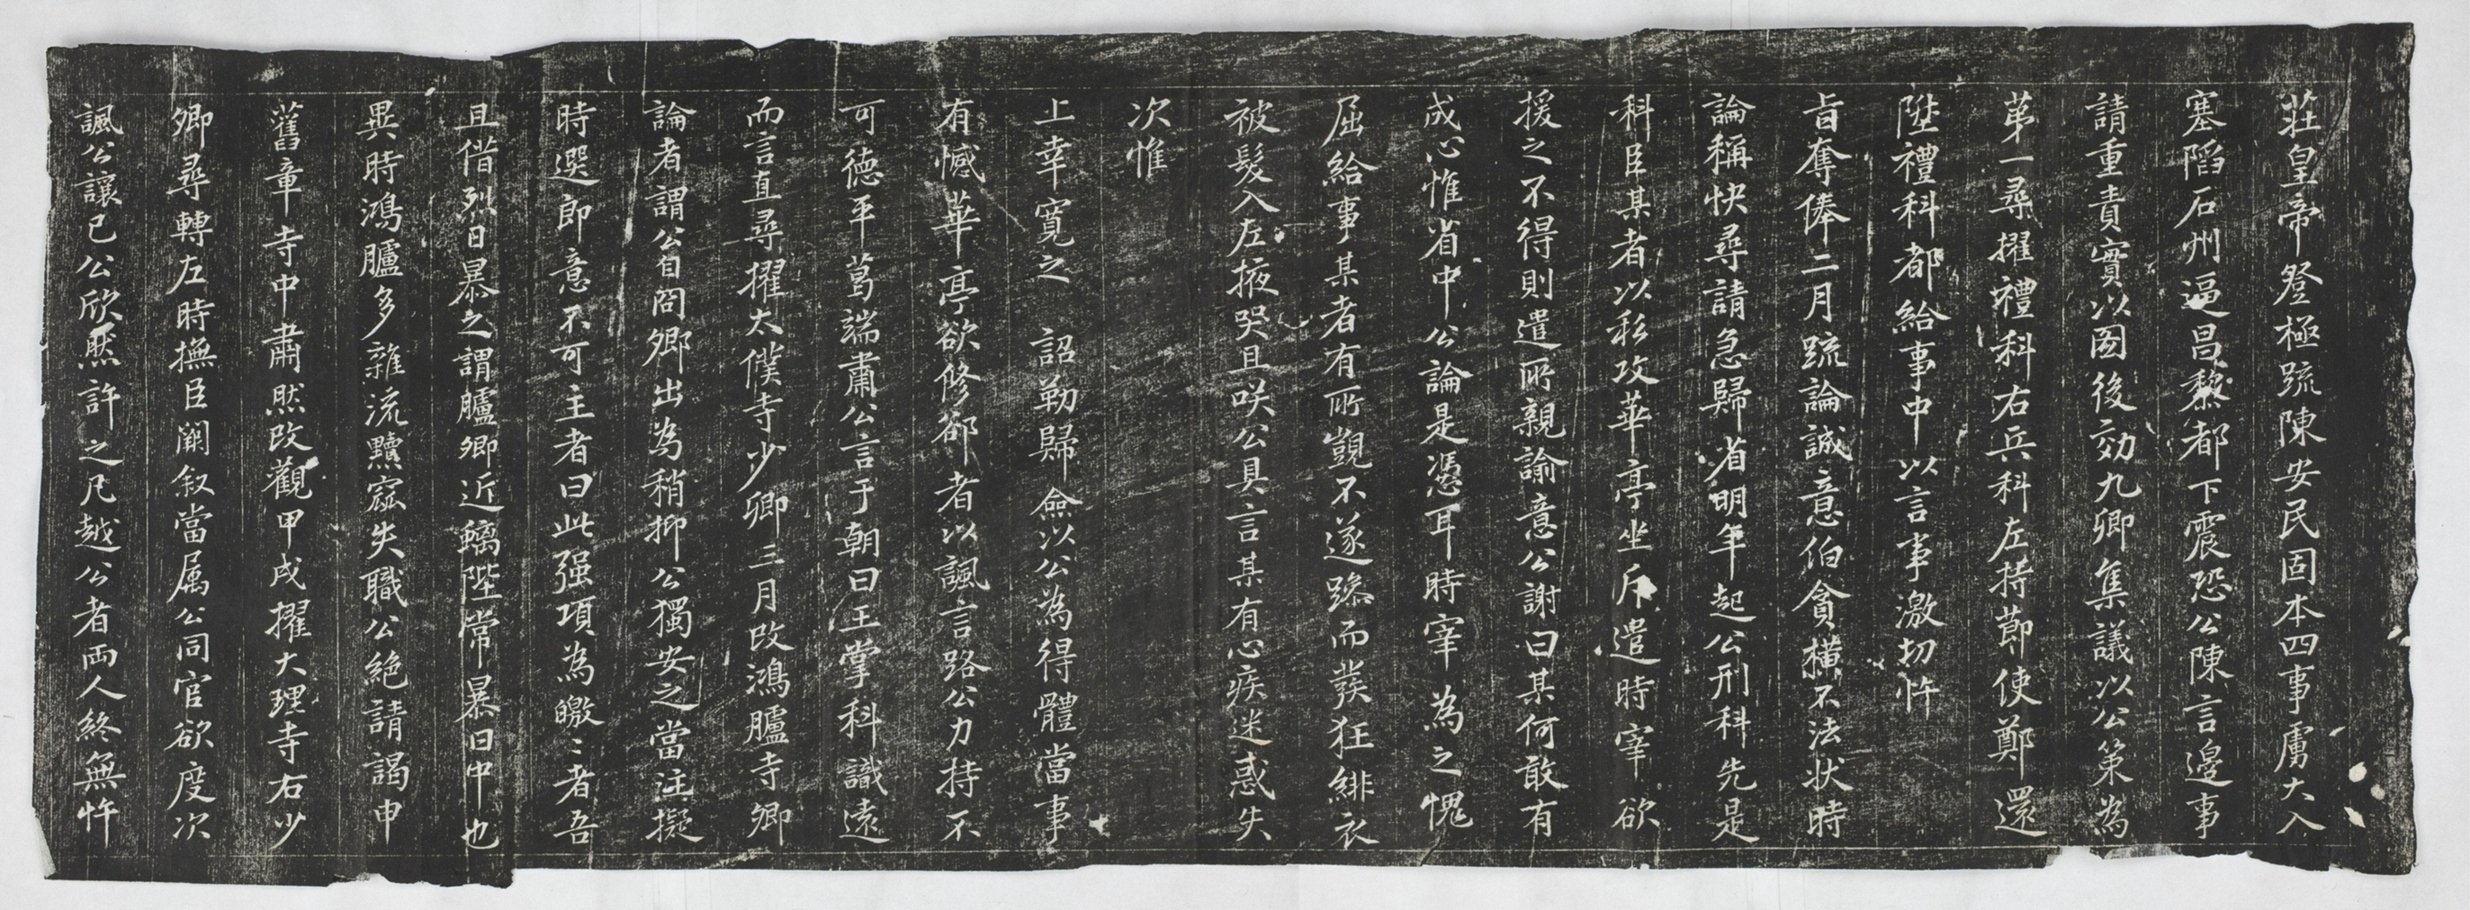 莊皇帝登極疏陳安民固本四事虜大入
塞陷石州逼昌黎都下震恐公陳言邊事
請重責實以圖後効九卿集議以公策為
第一尋擢禮科右兵科左持節使鄭還
陞禮科都給事中以言事激切忤
旨奪俸二月疏論誠意伯貪橫不法狀時
論稱快尋請急歸省明年起公刑科先是
科臣某者以私攻華亭坐斥遣時宰欲
援之不得則遣所親諭意公謝曰某何敢有
成心惟省中公論是憑耳時宰為之愧
屈給事某者有所覬不遂路而發狂緋衣
被髮入左掖哭且咲公具言某有心疾迷惑失
次惟
上幸寬之詔勒歸僉以公為得體當事
有憾華亭欲修郤者以諷言路公力持不
可德平葛端肅公言于朝曰王掌科識遠
而言直尋擢太僕寺少卿三月改鴻臚寺卿
論者謂公自冏卿出為稍抑公獨安之當注擬
時選郎意不可主者曰此强項為皦〻者吾
且借烈日暴之謂臚卿近螭陛常暴日中也
異時鴻臚多雜流黷窳失職公絕請謁申
舊章寺中肅然改觀甲戌擢大理寺右少
卿尋轉左時撫臣闕敘當属公同官欲度次
諷公讓已公欣然許之凡越公者両人終無忤